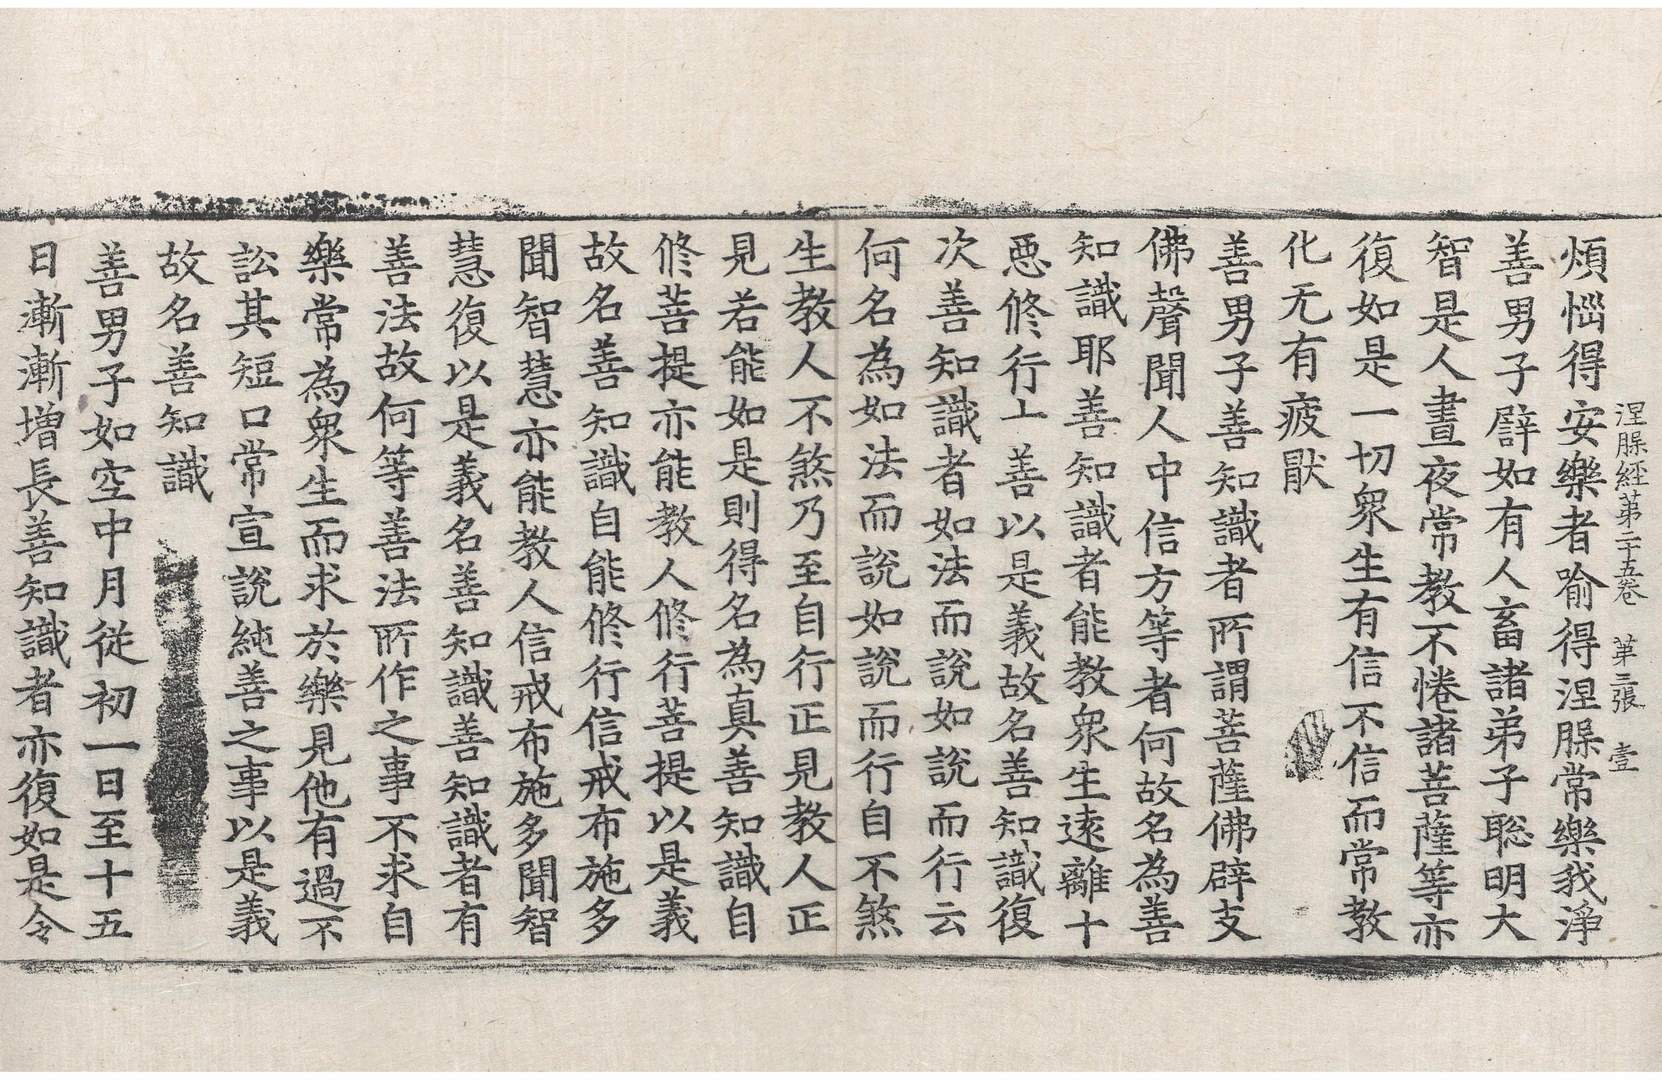 涅脲經苐二十五卷　苐三張　壹
煩惱得安樂者喻得涅脲常樂我淨
善男子辟如有人畜諸弟子聡明大
智是人晝夜常教不惓諸菩薩等亦
復如是一切衆生有信不信而常教
化无有疲猒
善男子善知識者所謂菩薩佛辟支
佛聲聞人中信方等者何故名為善
知識耶善知識者能教衆生遠離十
惡修行十善以是義故名善知識復
次善知識者如法而說如說而行云
何名為如法而說如說而行自不煞
生教人不煞乃至自行正見教人正
見若能如是則得名為真善知識自
修菩提亦能教人修行菩提以是義
故名善知識自能修行信戒布施多
聞智慧亦能教人信戒布施多聞智
慧復以是義名善知識善知識者有
善法故何等善法所作之事不求自
樂常為衆生而求於樂見他有過不
訟其短口常宣說純善之事以是義
故名善知識
善男子如空中月從初一日至十五
日漸漸增長善知識者亦復如是令